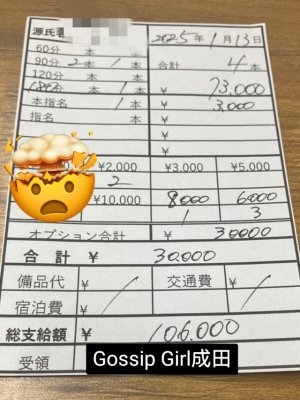 源氏名 2025年1月13日
60分 本 本
90分 2本 1本 合計 4本
120分 本 本
180分 本 1本 ¥ 73,000
本指名 1本 ¥ 3,000
指名 本 ¥
¥
¥
¥2,000 ¥3,000 ¥5,000
2
¥10,000 8000 6000
1 3
オプション合計 ¥ 30000
合計 ¥ 30,000
備品代 ¥ / 交通費 ¥ /
宿泊費 ¥ ¥
総支給額 ¥ 106,000
受領
Gossip Girl成田